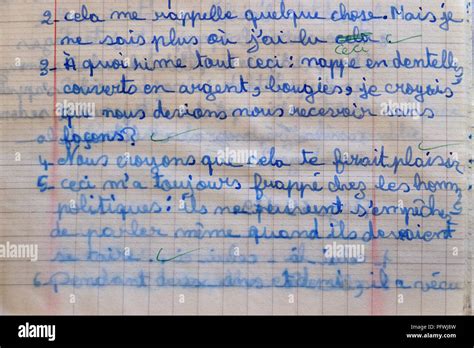 2. cela me rappelle quelque chose. Mais je
ne sais plus où j'ai lu cela
ceci
3. À quoi rime tout ceci : nappe en dentelle,
couverts en argent, bougies, je croyais
que nous devions nous recevoir sans
façons?
4. Nous croyons que cela te ferait plaisir
5. ceci m'a toujours frappé chez les hom
politiques : ils ne peuvent s'empêche
de parler même quand ils devraient
se taire.
6. Pendant deux ans, il a vécu
alamy stock photo